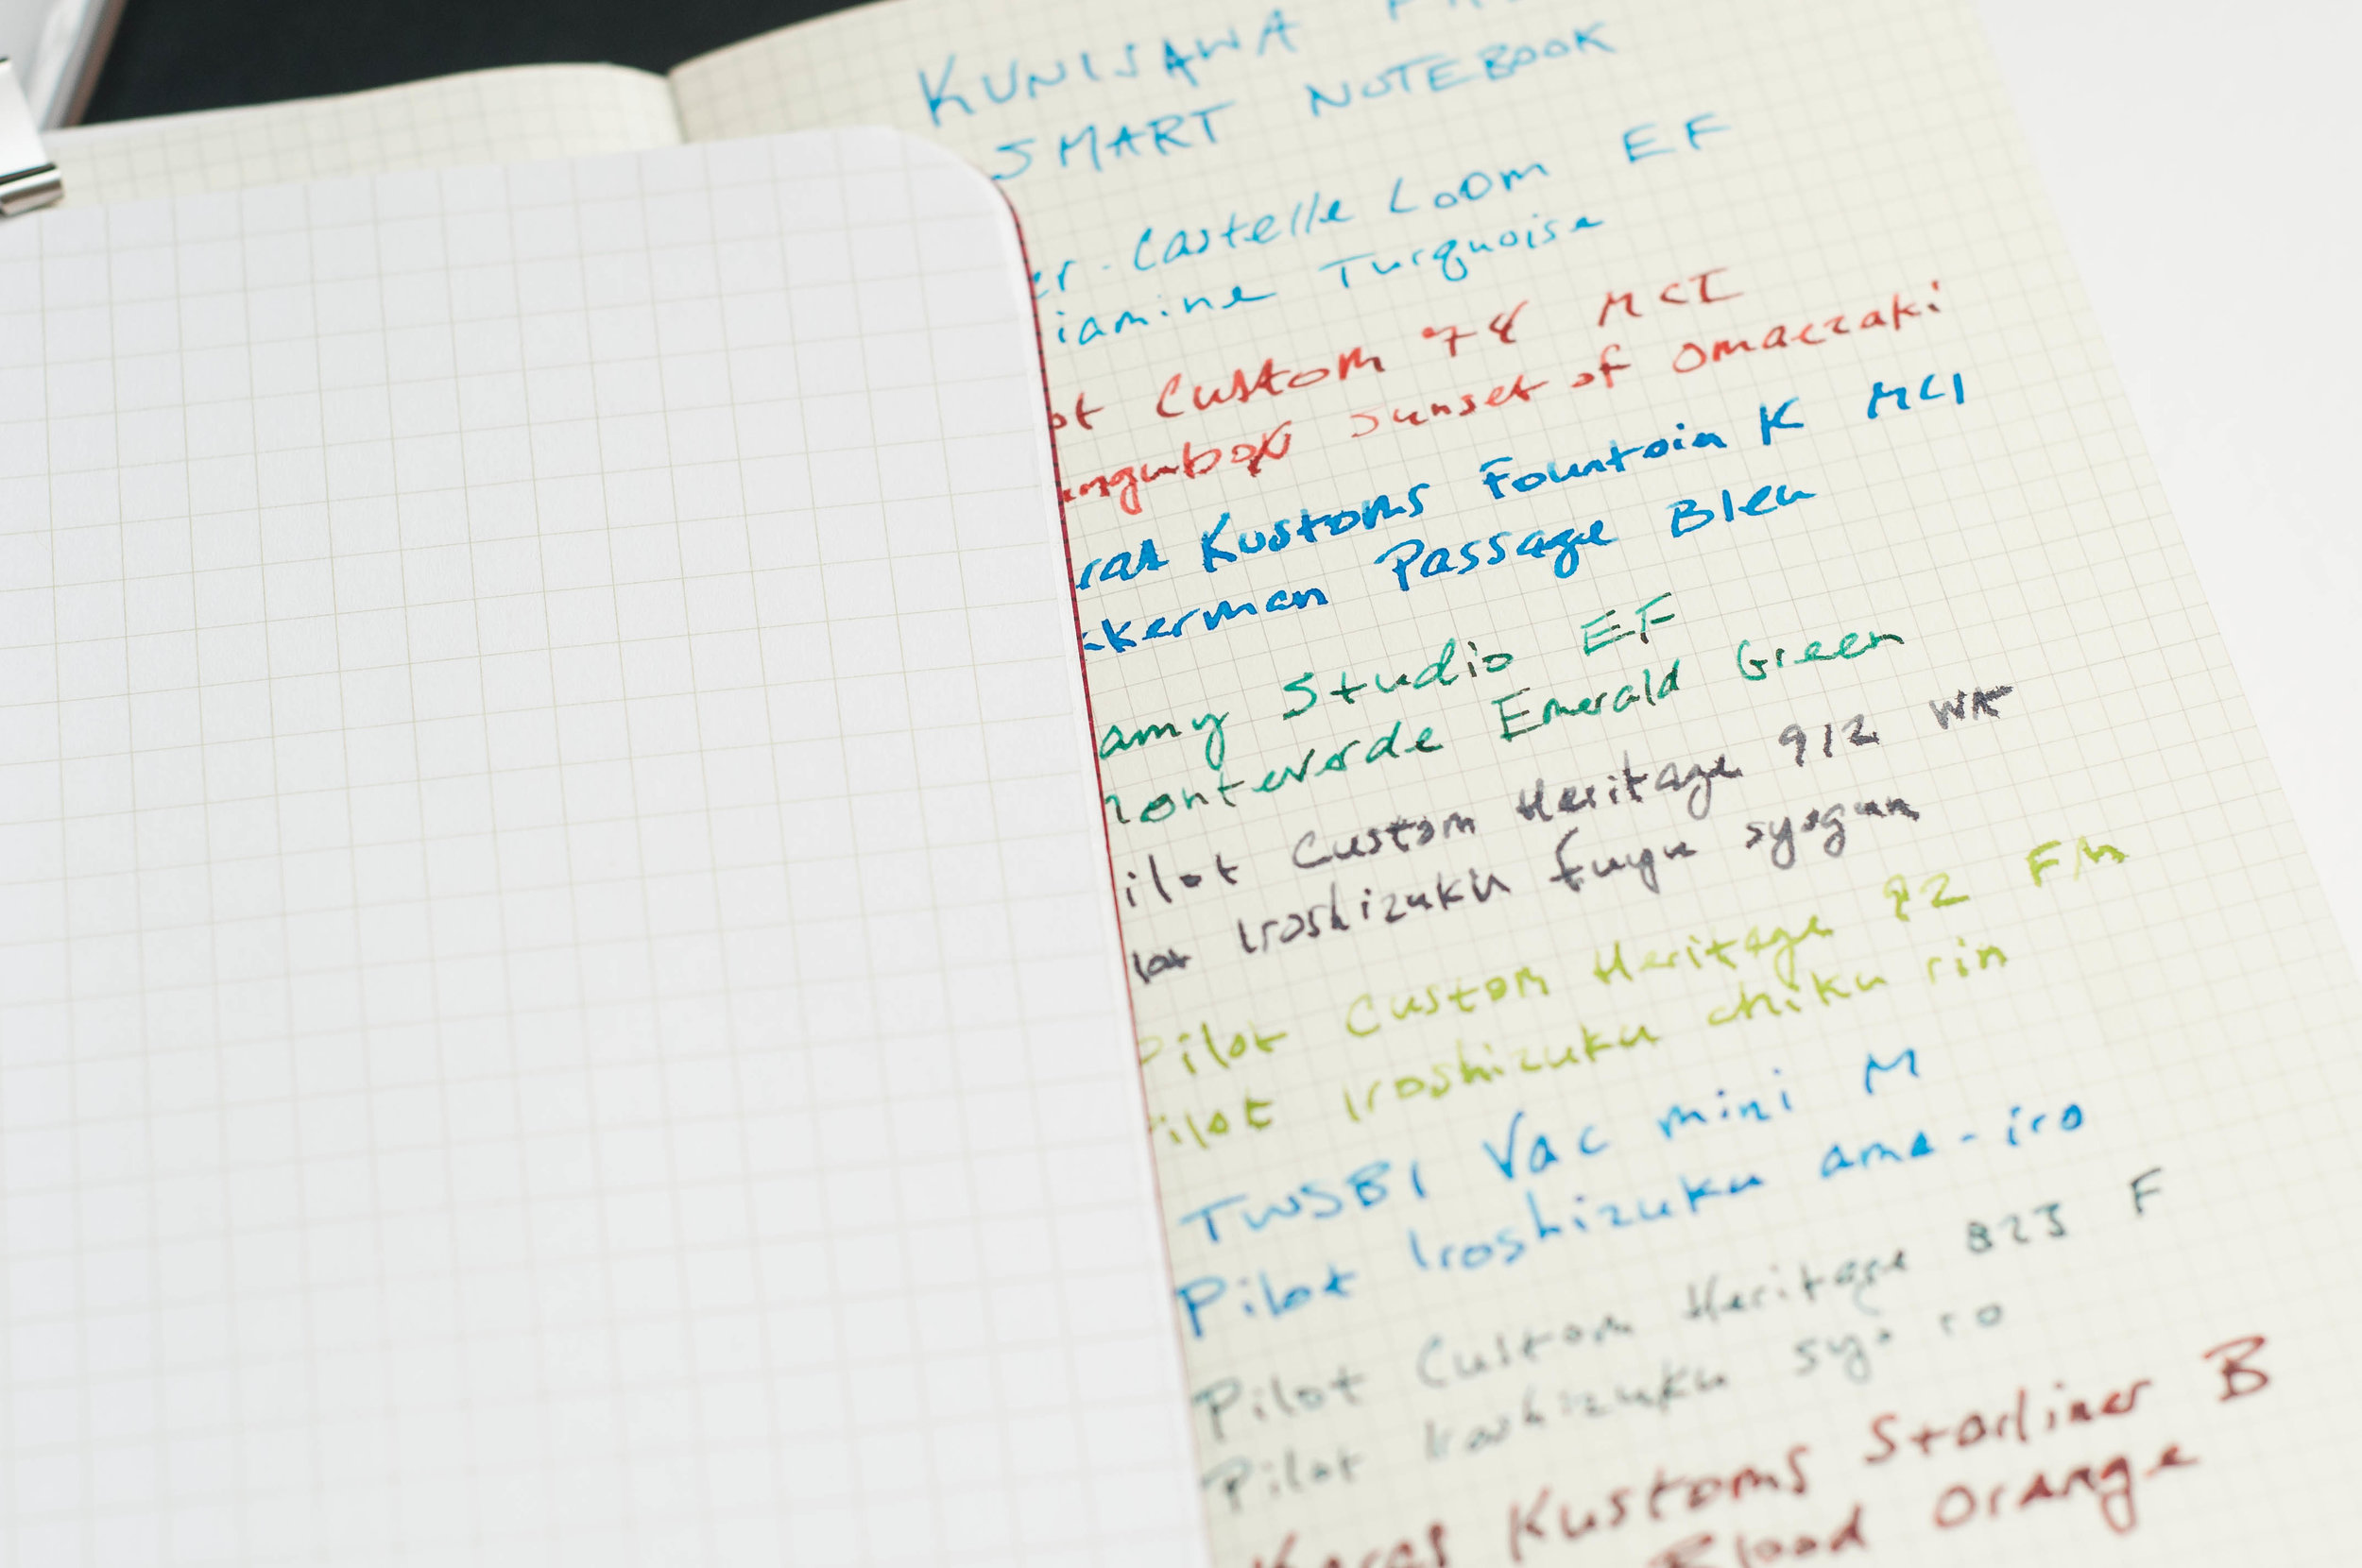 KUNISAWA
SMART NOTEBOOK
er-Castelle Loom EF
iamine Turquoise
ot Custom 74 MCI
ngubox Sunset of Omaezaki
ras Kustoms Fountain K MCI
kerman Passage Bleu
amy Studio EF
onteverde Emerald Green
ilot Custom Heritage 912 WA
lot Iroshizuku fuyu syogun
Pilot Custom Heritage 92 FM
Pilot Iroshizuku chiku rin
TWSBI Vac mini M
Pilot Iroshizuku ame-iro
Pilot Custom Heritage 823 F
Pilot Iroshizuku syo ro
Karas Kustoms Starliner B
Blood Orange